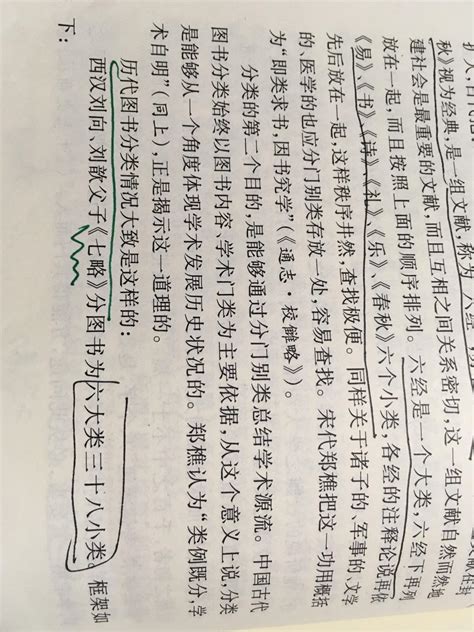 秋》视为经典,是一组文献,称为 经
文献在封
建社会是最重要的文献,而且互相之间关系密切,这一组文献自然而然地
放在一起,而且按照上面的顺序排列。六经是一个大类,六经下再列
《易》、《书》、《诗》、《礼》、《乐》、《春秋》六个小类,各经的注释论说再依
先后放在一起,这样秩序井然,查找极便。同样关于诸子的、军事的、文学
的、医学的也应分门别类存放一处,容易查找。宋代郑樵把这一功用概括
为“即类求书,因书究学”(《通志·校雠略》)。
分类的第二个目的,是能够通过分门别类总结学术源流。中国古代
图书分类始终以图书内容、学术门类为主要依据,从这个意义上说,分类
是能够从一个角度体现学术发展历史状况的。郑樵认为“类例既分,学
术自明”(同上),正是揭示这一道理的。
历代图书分类情况大致是这样的:
西汉刘向、刘歆父子《七略》分图书为六大类三十八小类。框架如
下: